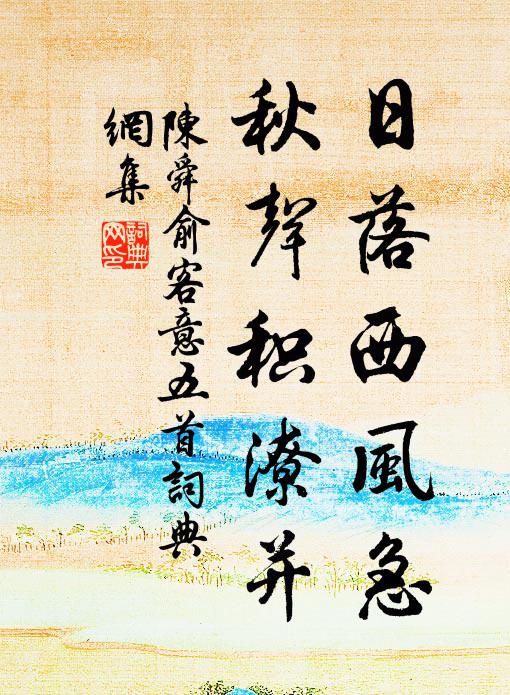 日落西風急
秋聲积潦并
陳舜俞客意五首詞典
網集
詞典
网印